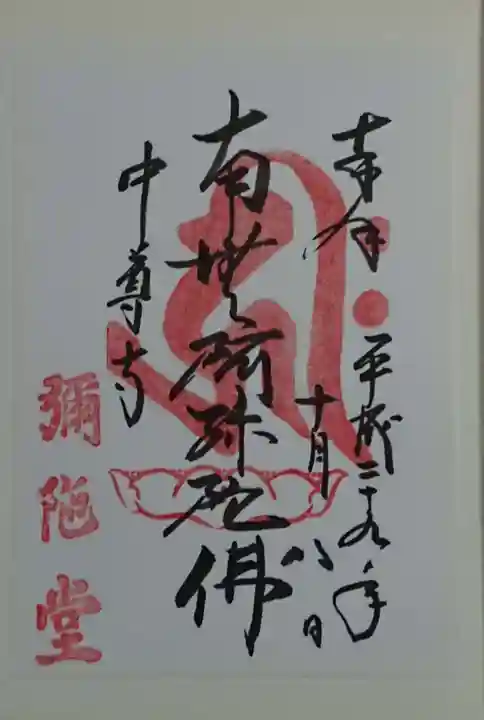 奉拝
平成二十九年
十月八日
南無阿弥陀佛
中尊寺
彌陀堂